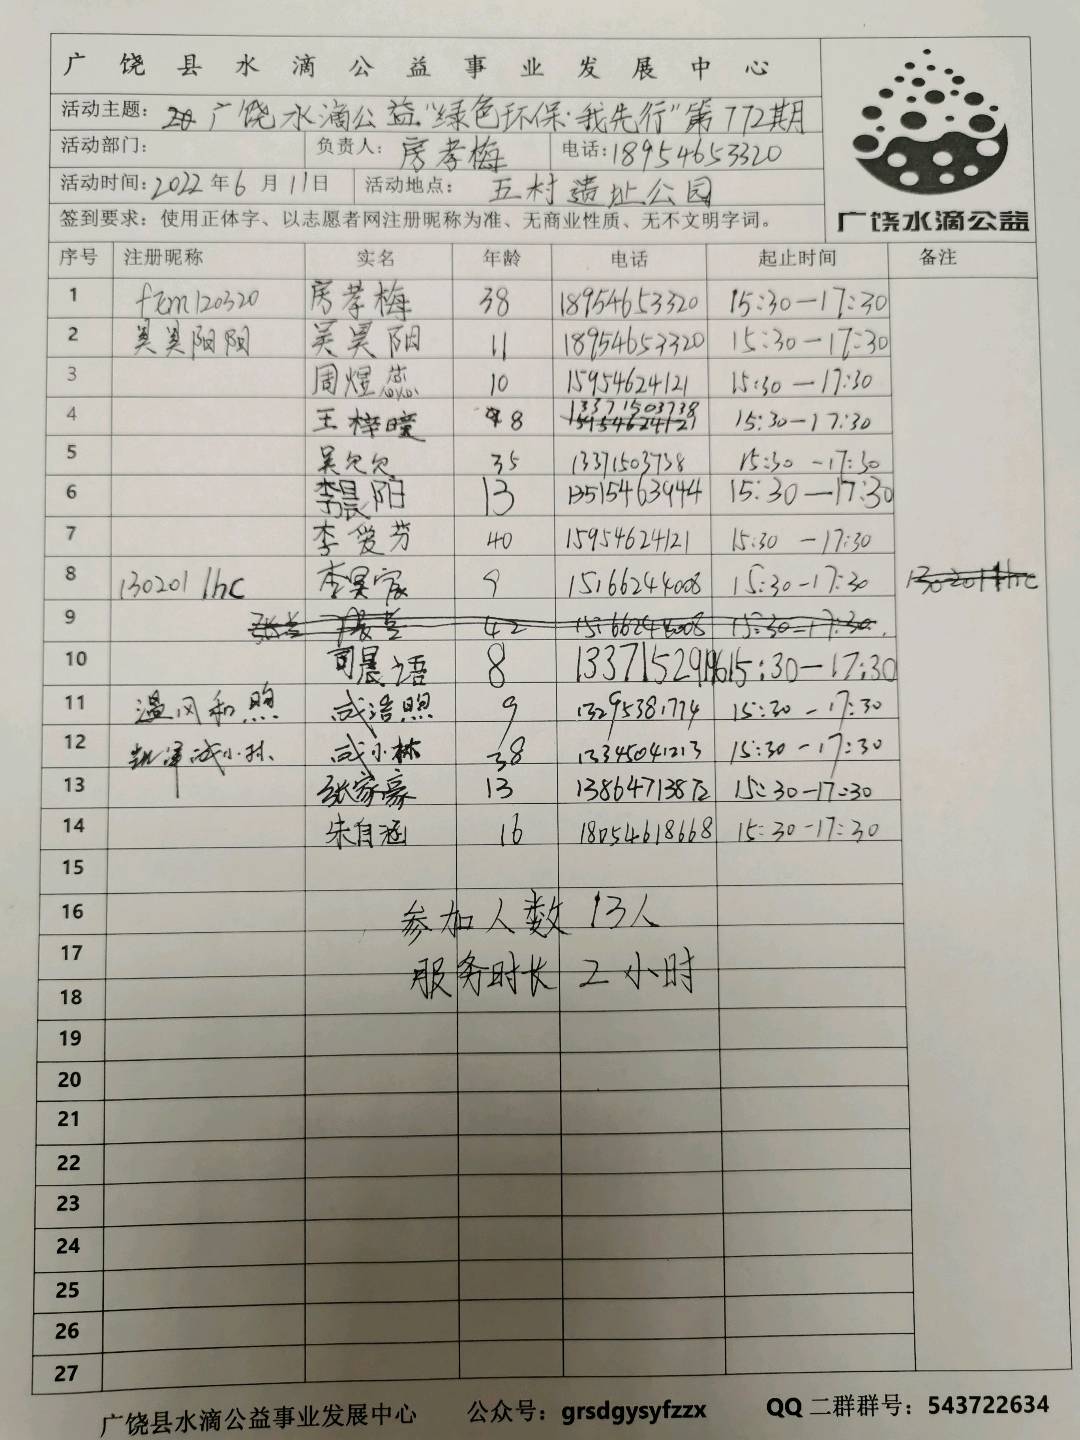 广饶县水滴公益事业发展中心
活动主题: 广饶水滴公益“绿色环保·我先行”第772期
活动部门: 负责人: 房孝梅 电话:18954653320
活动时间:2022年6月11日 活动地点: 五村遗址公园
签到要求: 使用正体字、以志愿者网注册昵称为准、无商业性质、无不文明字词。
广饶水滴公益
序号 注册昵称 实名 年龄 电话 起止时间 备注
1 fxm120320 房孝梅 38 18954653320 15:30—17:30
2 昊昊阳阳 吴昊阳 11 18954653320 15:30—17:30
3 周煜 10 15954624121 15:30—17:30
4 王梓曈 8 13371503738 15:30—17:30
5 吴欠欠 35 13371503738 15:30—17:30
6 李晨阳 13 13515463944 15:30—17:30
7 李爱芬 40 15954624121 15:30—17:30
8 130201lhc 李昊宸 9 15166244008 15:30—17:30 130201lhc
9 42 15166244008 15:30—17:30
10 司晨语 8 13371529196 15:30—17:30
11 温风和煦 成浩煦 9 13295381774 15:30—17:30
12 成小林 38 13345041213 15:30—17:30
13 张家豪 13 13864713872 15:30—17:30
14 朱自涵 16 18054618668 15:30—17:30
15
16 参加人数 13人
17
18 服务时长 2小时
19
20
21
22
23
24
25
26
27
广饶县水滴公益事业发展中心 公众号: grsdgysyfzzx QQ二群群号: 543722634